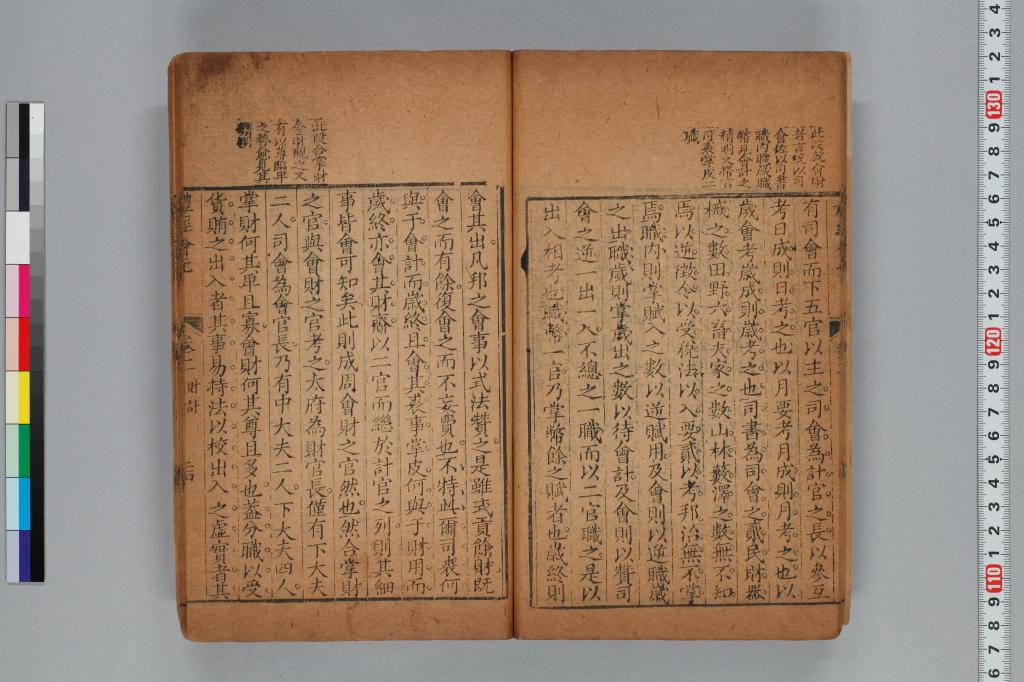 此段説會財
若言統以司
會佐以司書
職内職歲職
幣助會計之
精明又帶言
司裘掌皮二
職
有司會而下五官以主之司會為計官之長以參互
考日成則日考之也以月要考月成則月考之也以
歲會考歲成則歲考之也司書為司會之貳民財器
械之數田野六畜夫家之數山林藪澤之數無不知
焉以逆徵令以受稅法以入要貳以考邦治無不掌
焉職内則掌賦入之數以逆賦用及會則以逆職歲
之出職歲則掌歲出之數以待會計及會則以贊司
會之逆一出一入不總之一職而以二官職之是以
出入相考也職幣一官乃掌幣餘之賦者也歲終則
此段合掌財
會財觀之又
有以尊臨卑
之勢愈見其
會其出凡邦之會事以式法贊之是雖式貢餘財既
會之而有餘復會之而不妄費也不特此爾司裘何
與于會計而歲終且會其裘事掌皮何與于財用而
歲終亦會其財齎以二官而繼於計官之列則其細
事皆會可知矣此則成周會財之官然也然合掌財
之官與會財之官考之大府為財官長僅有下大夫
二人司會為會官長乃有中大夫二人下大夫四人
掌財何其卑且寡會財何其尊且多也蓋分職以受
貨賄之出入者其事易持法以校出入之虛實者其
禮經會元
卷二
財計